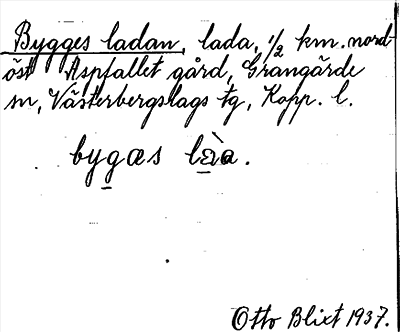 Bygges ladan, lada, ½ km. nord-
öst Aspfallet gård, Grangärde
sn, Västerbergslags tg, Kopp. l.
bygæs làa.
Otto Blixt 1937.